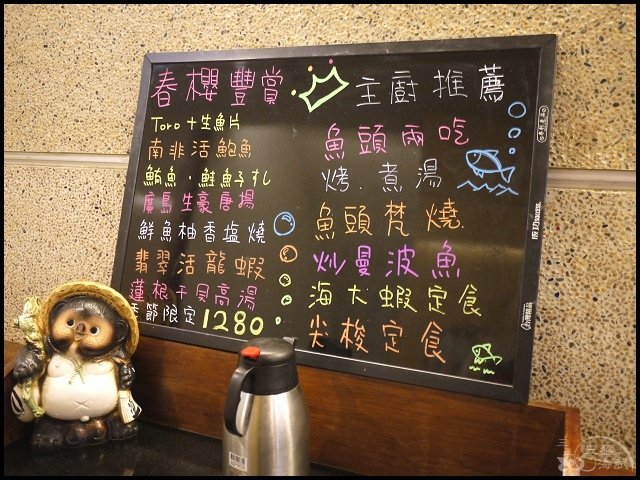 春櫻豐賞
Toro+生魚片
南非活鮑魚
鮪魚·鮭魚子丸
廣島生豪唐揚
鮮魚柚香塩燒
翡翠活龍蝦
蓮根干贝高湯
季節限定1280
主廚推薦
魚頭兩吃
烤.煮湯
魚頭梵燒.
炒曼波魚
海大蝦定食
尖梭定食